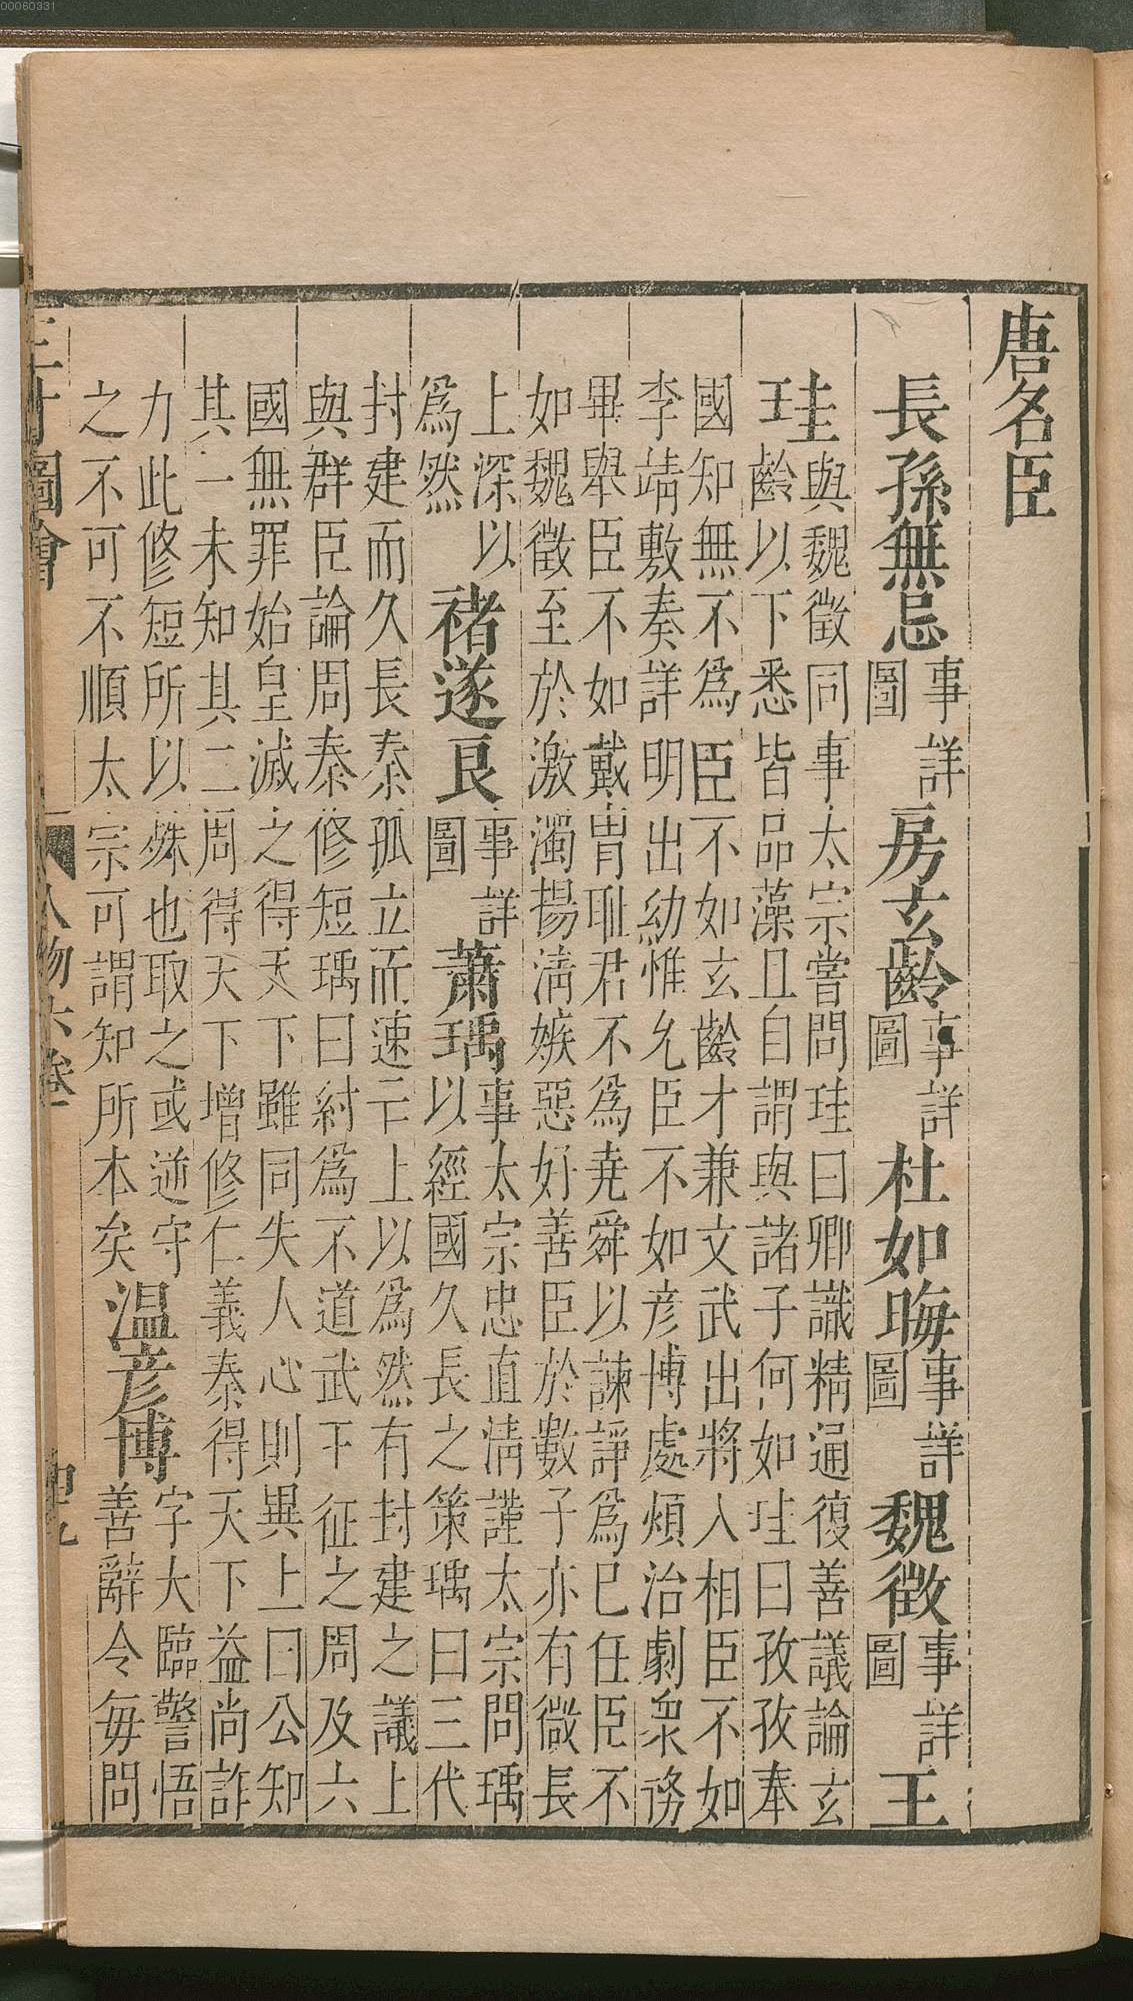 唐名臣
長孫無忌事詳圖房玄齡事詳圖杜如晦事詳圖魏徵事詳圖王
珪與魏徵同事太宗嘗問珪曰卿識精通復善議論玄
齡以下悉皆品藻且自謂與諸子何如珪曰孜孜奉
國知無不爲臣不如玄齡才兼文武出將入相臣不如
李靖敷奏詳明出幼惟允臣不如彦博處煩治劇衆務
畢舉臣不如戴胄耻君不爲堯舜以諫諍爲已任臣不
如魏徵至於激濁揚淸嫉惡好善臣於數子亦有微長
上深以
爲然
褚遂良事詳圖蕭瑀
事太宗忠直淸謹太宗問瑀
以經國久長之策瑀曰三代
封建而久長秦孤立而速亡上以爲然有封建之議上
與群臣論周秦修短瑀曰紂爲不道武王征之周及六
國無罪始皇滅之得天下雖同失人心則異上曰公知
其一未知其二周得天下增修仁義秦得天下益尚詐
力此修短所以殊也取之或逆守
之不可不順太宗可謂知所本矣
温彦博
字大臨警悟
善辭令毎問
三才圖會
人物六卷
00060331